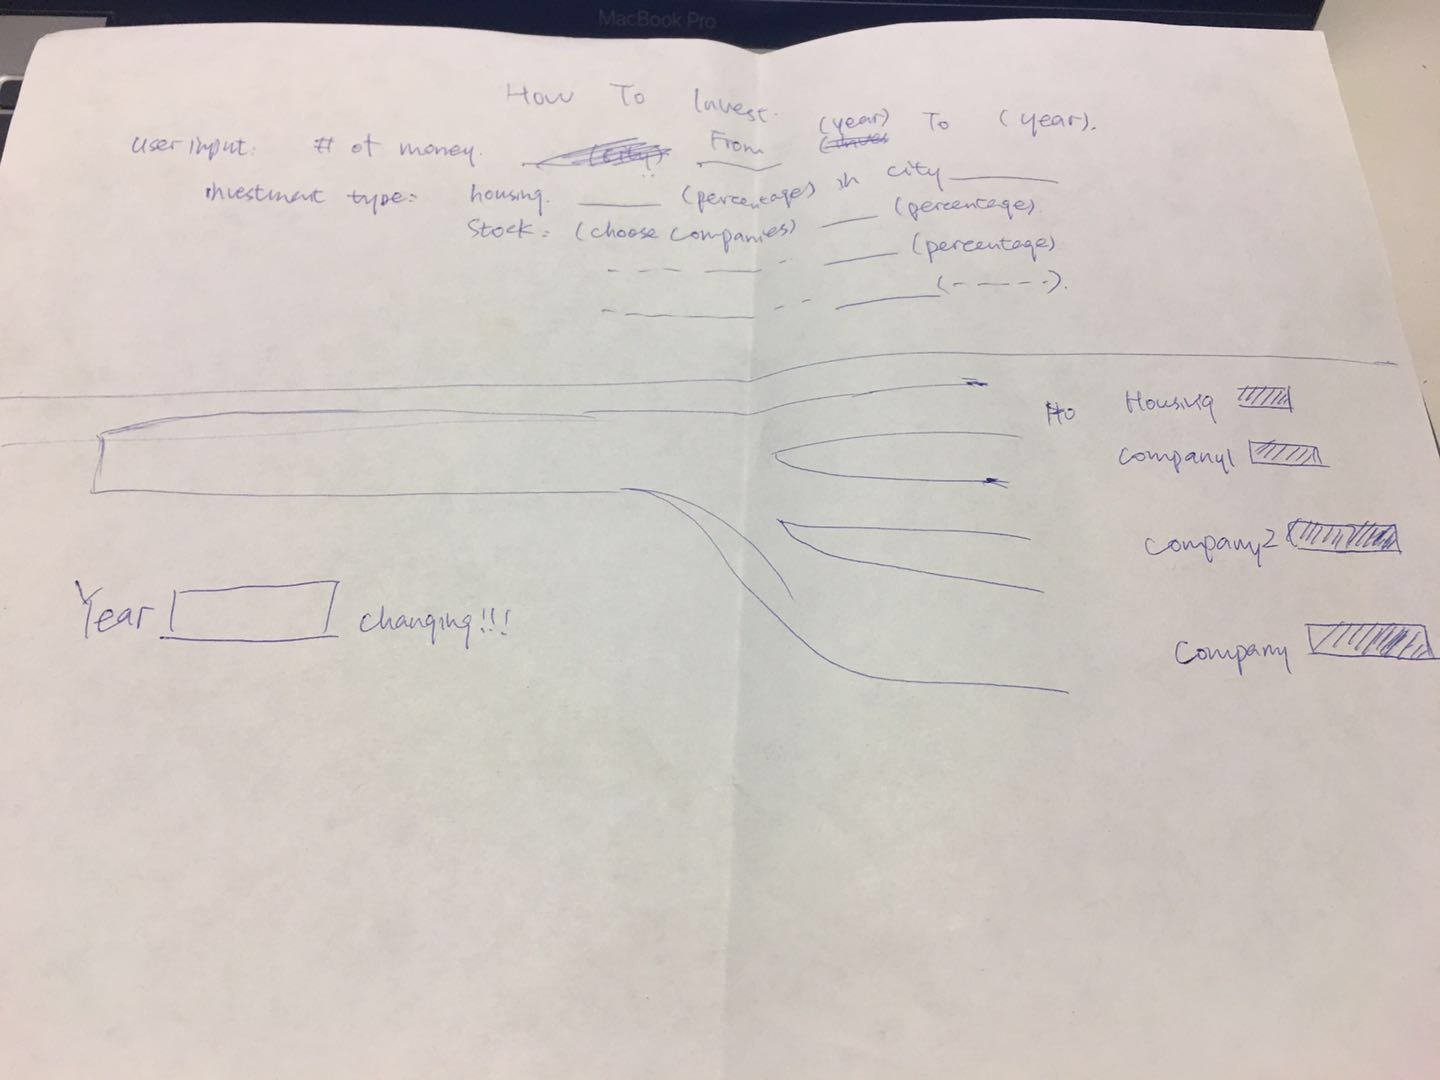 MacBook Pro
How To Invest.
user input: # of money. (city) From (year) To (year).
investment type: housing. (percentage) in city
Stock: (choose companies) (percentage)
(percentage)
Ho Housing
Company1
Company2
Year changing!!!
Company